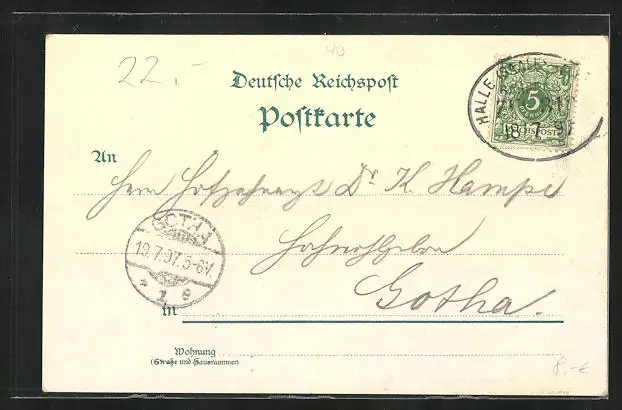 22.-
HALLE (SAALE)
5
REICHSPOST
18 7 97
Deutsche Reichspost
Postkarte
An
Herrn Hofzahnarzt Dr. K. Hampe
Hochwohlgeboren
GOTHA
19.7.97.5-6V.
* 1 e
in Gotha.
Wohnung
(Straße und Hausnummer)
8.-€